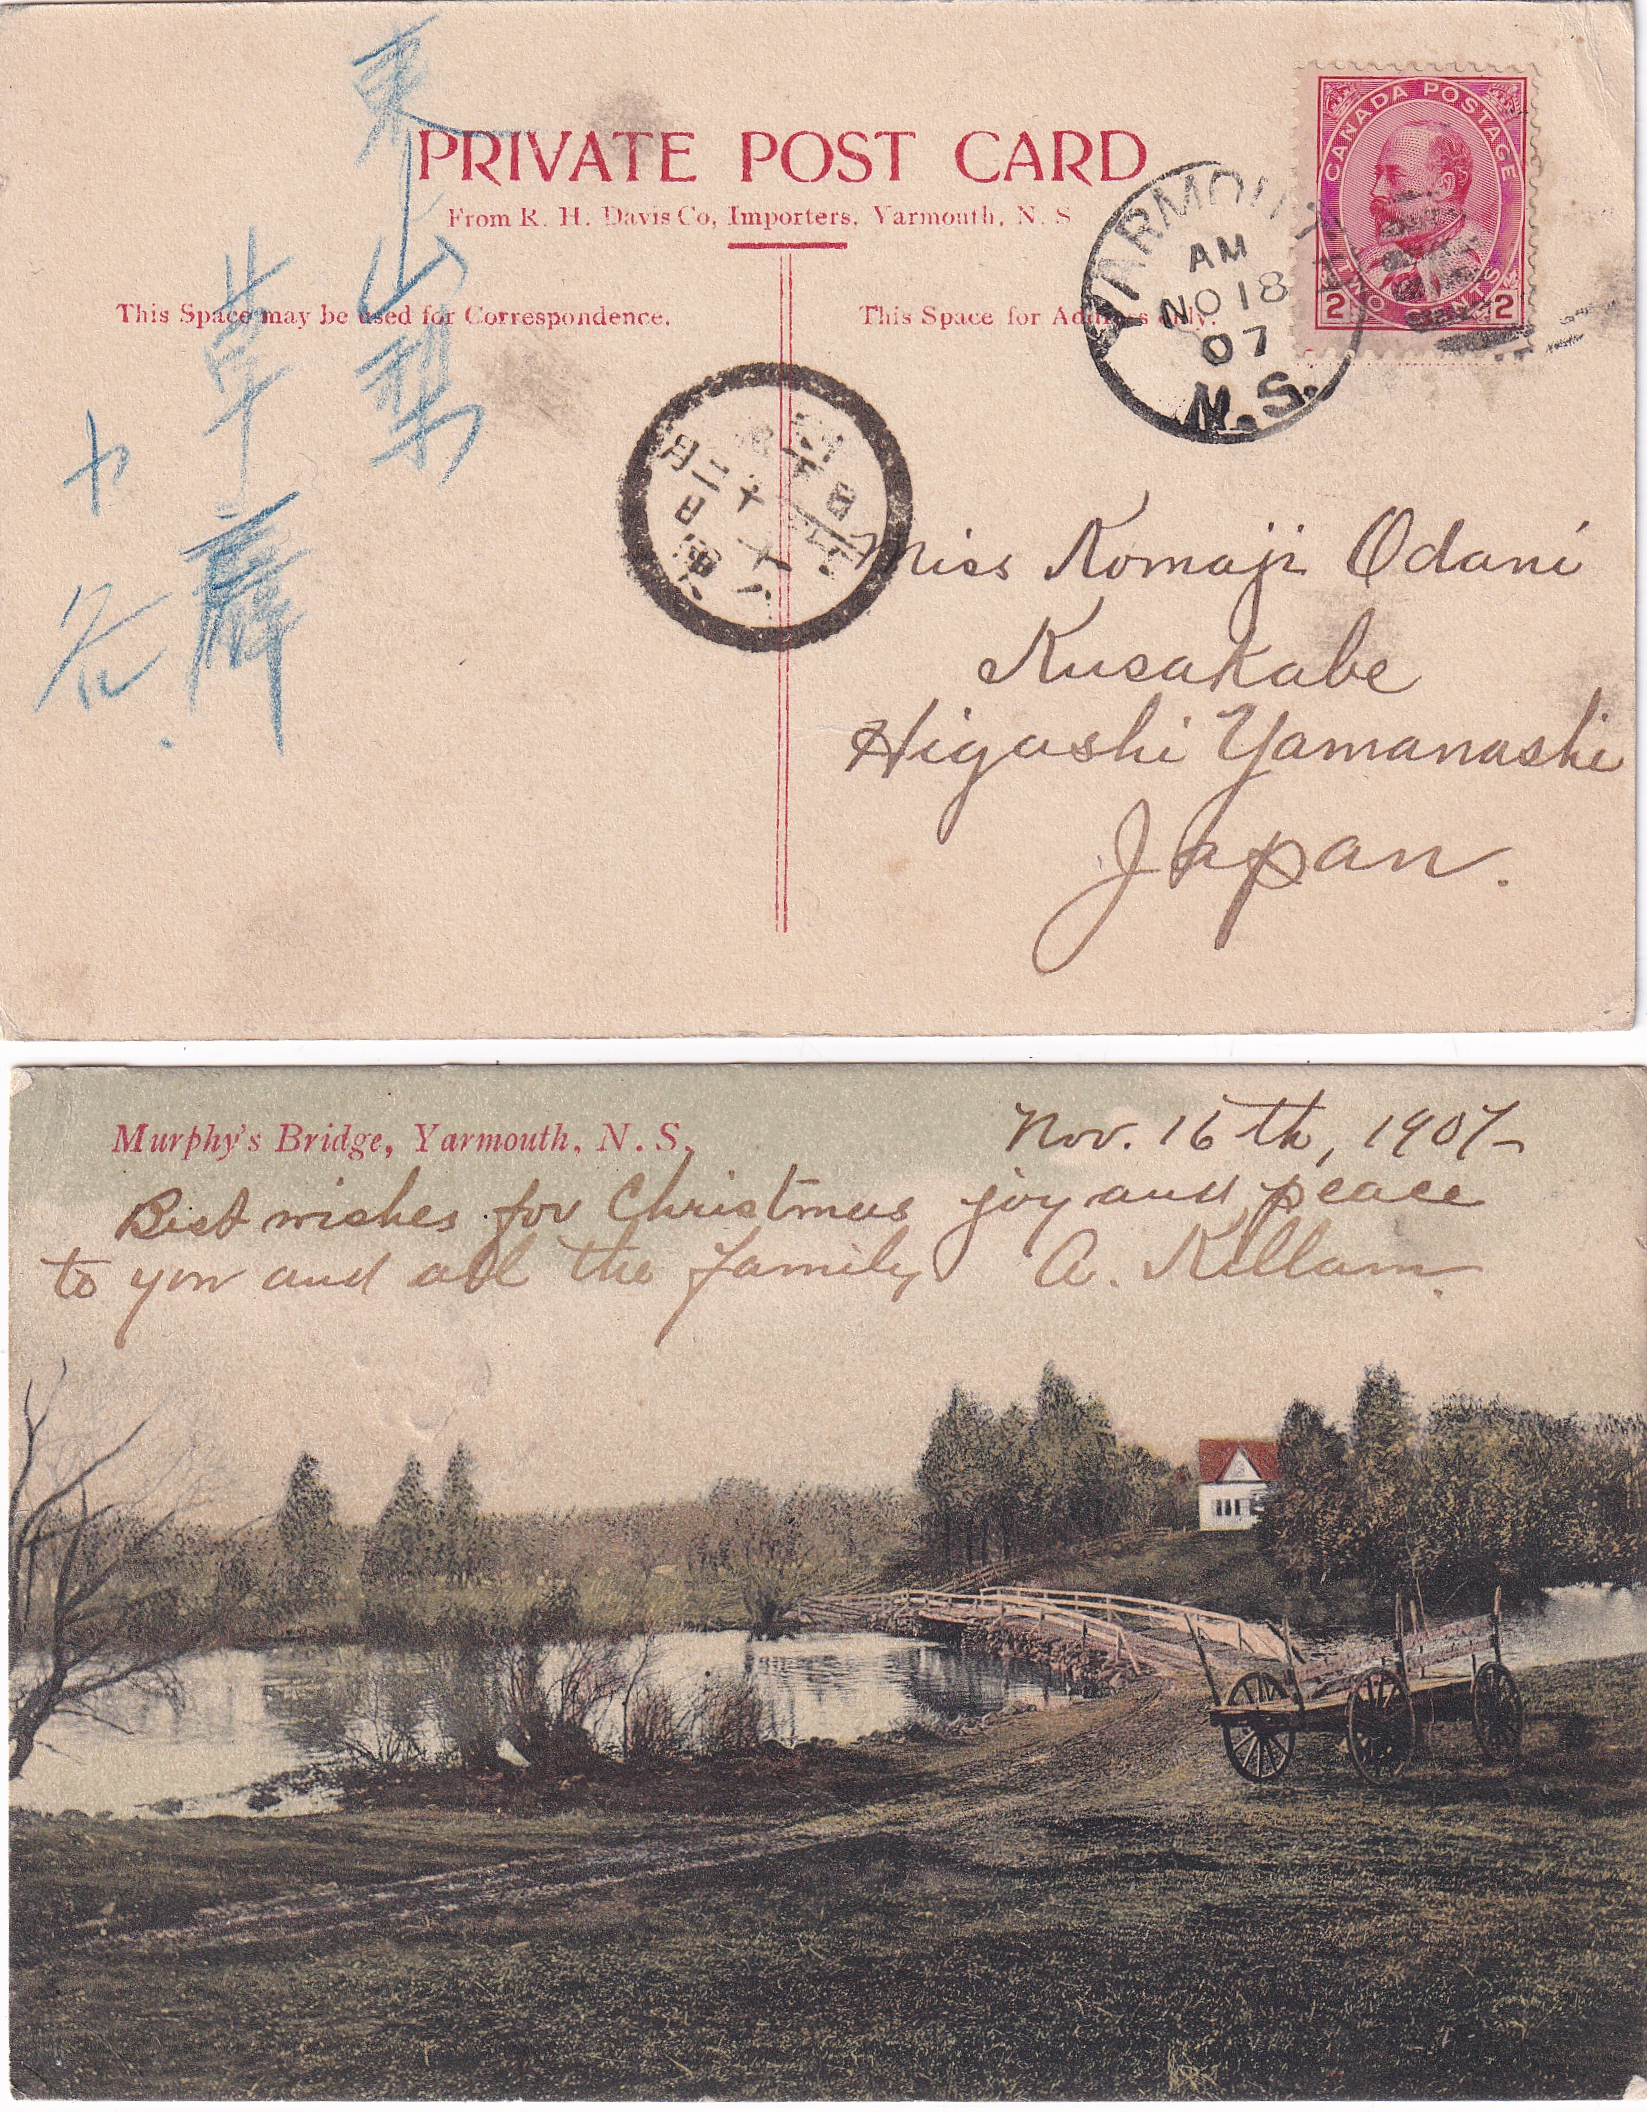 PRIVATE POST CARD
From R. H. Davis Co, Importers, Yarmouth, N. S
This Space may be used for Correspondence.
This Space for Address only.
CANADA POSTAGE
TWO CENTS
2 2
YARMOUTH
AM
NO 18
07
N.S.
東山梨
Miss Komaji Odani
Kusakabe
Higashi Yamanashi
Japan.
Murphy's Bridge, Yarmouth, N. S.
Nov. 16th, 1907
Best wishes for Christmas joy and peace
to you and all the family A. Killam.